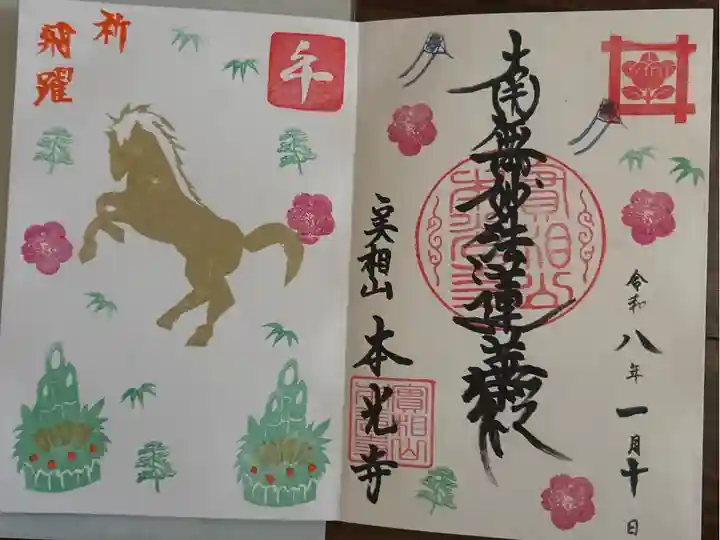 南無妙法蓮華経
実相山
本光寺
令和八年一月十日
午
祈
飛躍